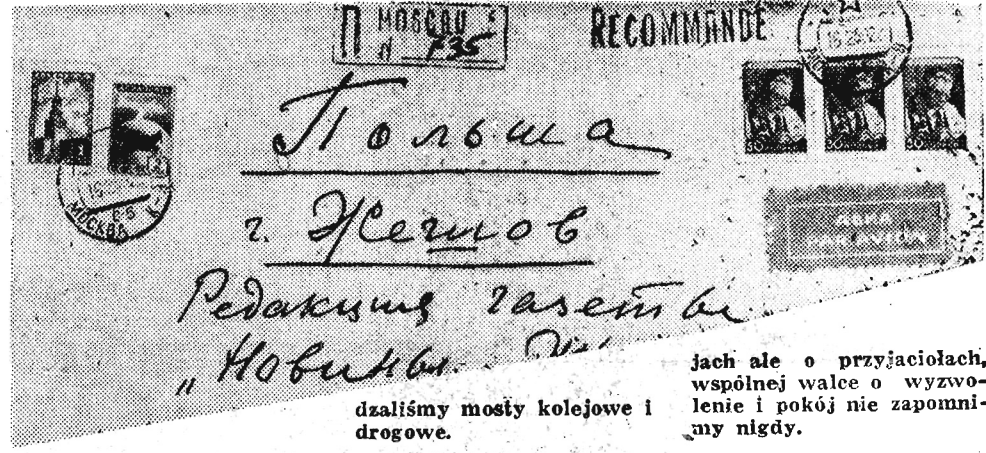 П MOSCOU
N 735
RECOMMANDÉ
Польша
г. Жешов
Редакция газеты
„Новины
МОСКВА
PAR AVION
dzaliśmy mosty kolejowe i
drogowe.
jach ale o przyjaciołach,
wspólnej walce o wyzwo-
lenie i pokój nie zapomni-
my nigdy.